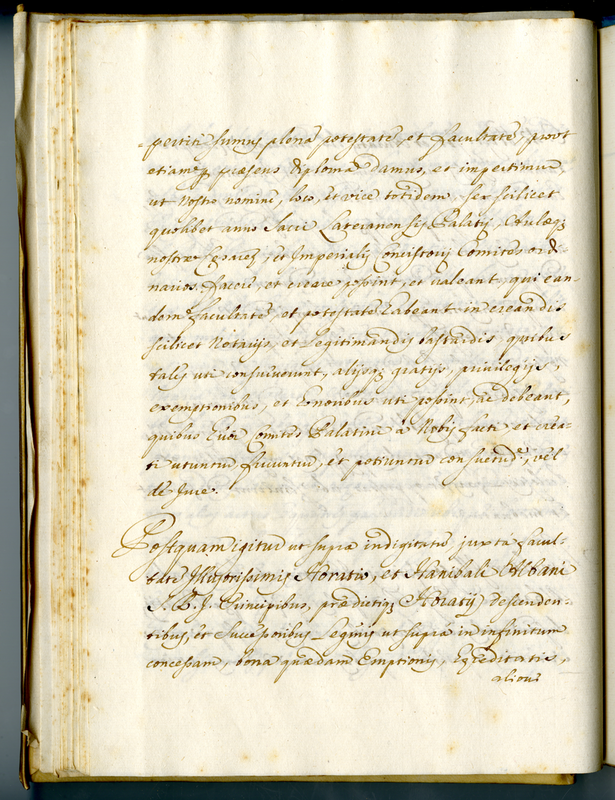 =pertiti sumus plenã potestatẽ, et facultatẽ, prout
etiamq; præsens diploma damus, et impertimur
ut Nostro nomine, loco, et vice totidem ser scilicet
quolibet anno Sacri Lateranensis Palatij, Aulæq;
nostræ Cesareæ, et Imperialis Concistorij Comites ordi
narios facere, et creare possint, et valeant, qui ean-
dem facultatẽ, et potestatẽ habeant in creandis
scilicet Notarijs, et Legitimandis bastardis, quibus
tales uti consueverunt, alijsq; gratijs, privilegijs,
exemptionibus, et honoribus uti possint, ac debeant,
quibus huiusmodi Comites Palatini à Nobis facti et crea-
ti utuntur fruuntur, et potiuntur consuetud.e, vel
de Jure.
Postquam igitur ut supra indigitatis juxta facul-
tatẽ Illustrissimis Horatio, et Hanibali Albani
S. R. J. Principibus, prædictiq; Horatij descenden-
tibus, et Successoribus Legitimis ut supra in infinitum
concessam, bona quædam Emptionis, Hæreditatis,
alious